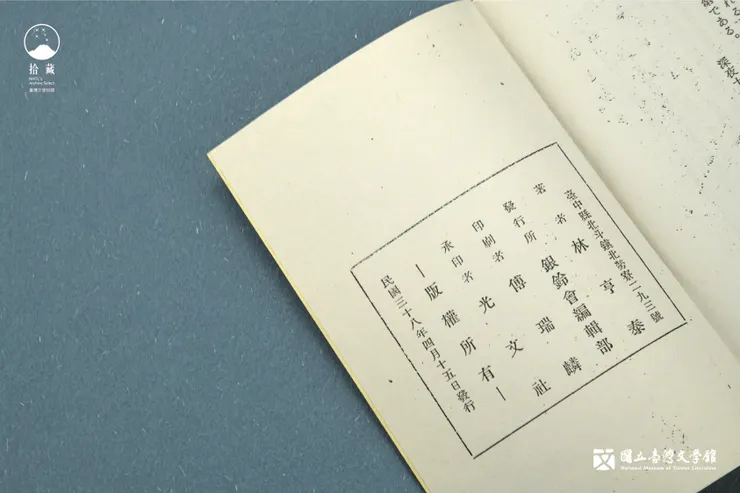 拾藏
臺灣文學物語
れる、
である。 深夜
臺中縣北斗鎮北勢寮二九三號
著者 林亨泰
發行所 銀鈴會編輯部
印刷者 傅瑞麟
承印者 光文社
—版權所有—
民國三十八年四月十五日發行
國立台灣文学館
National Museum of Taiwan Literature